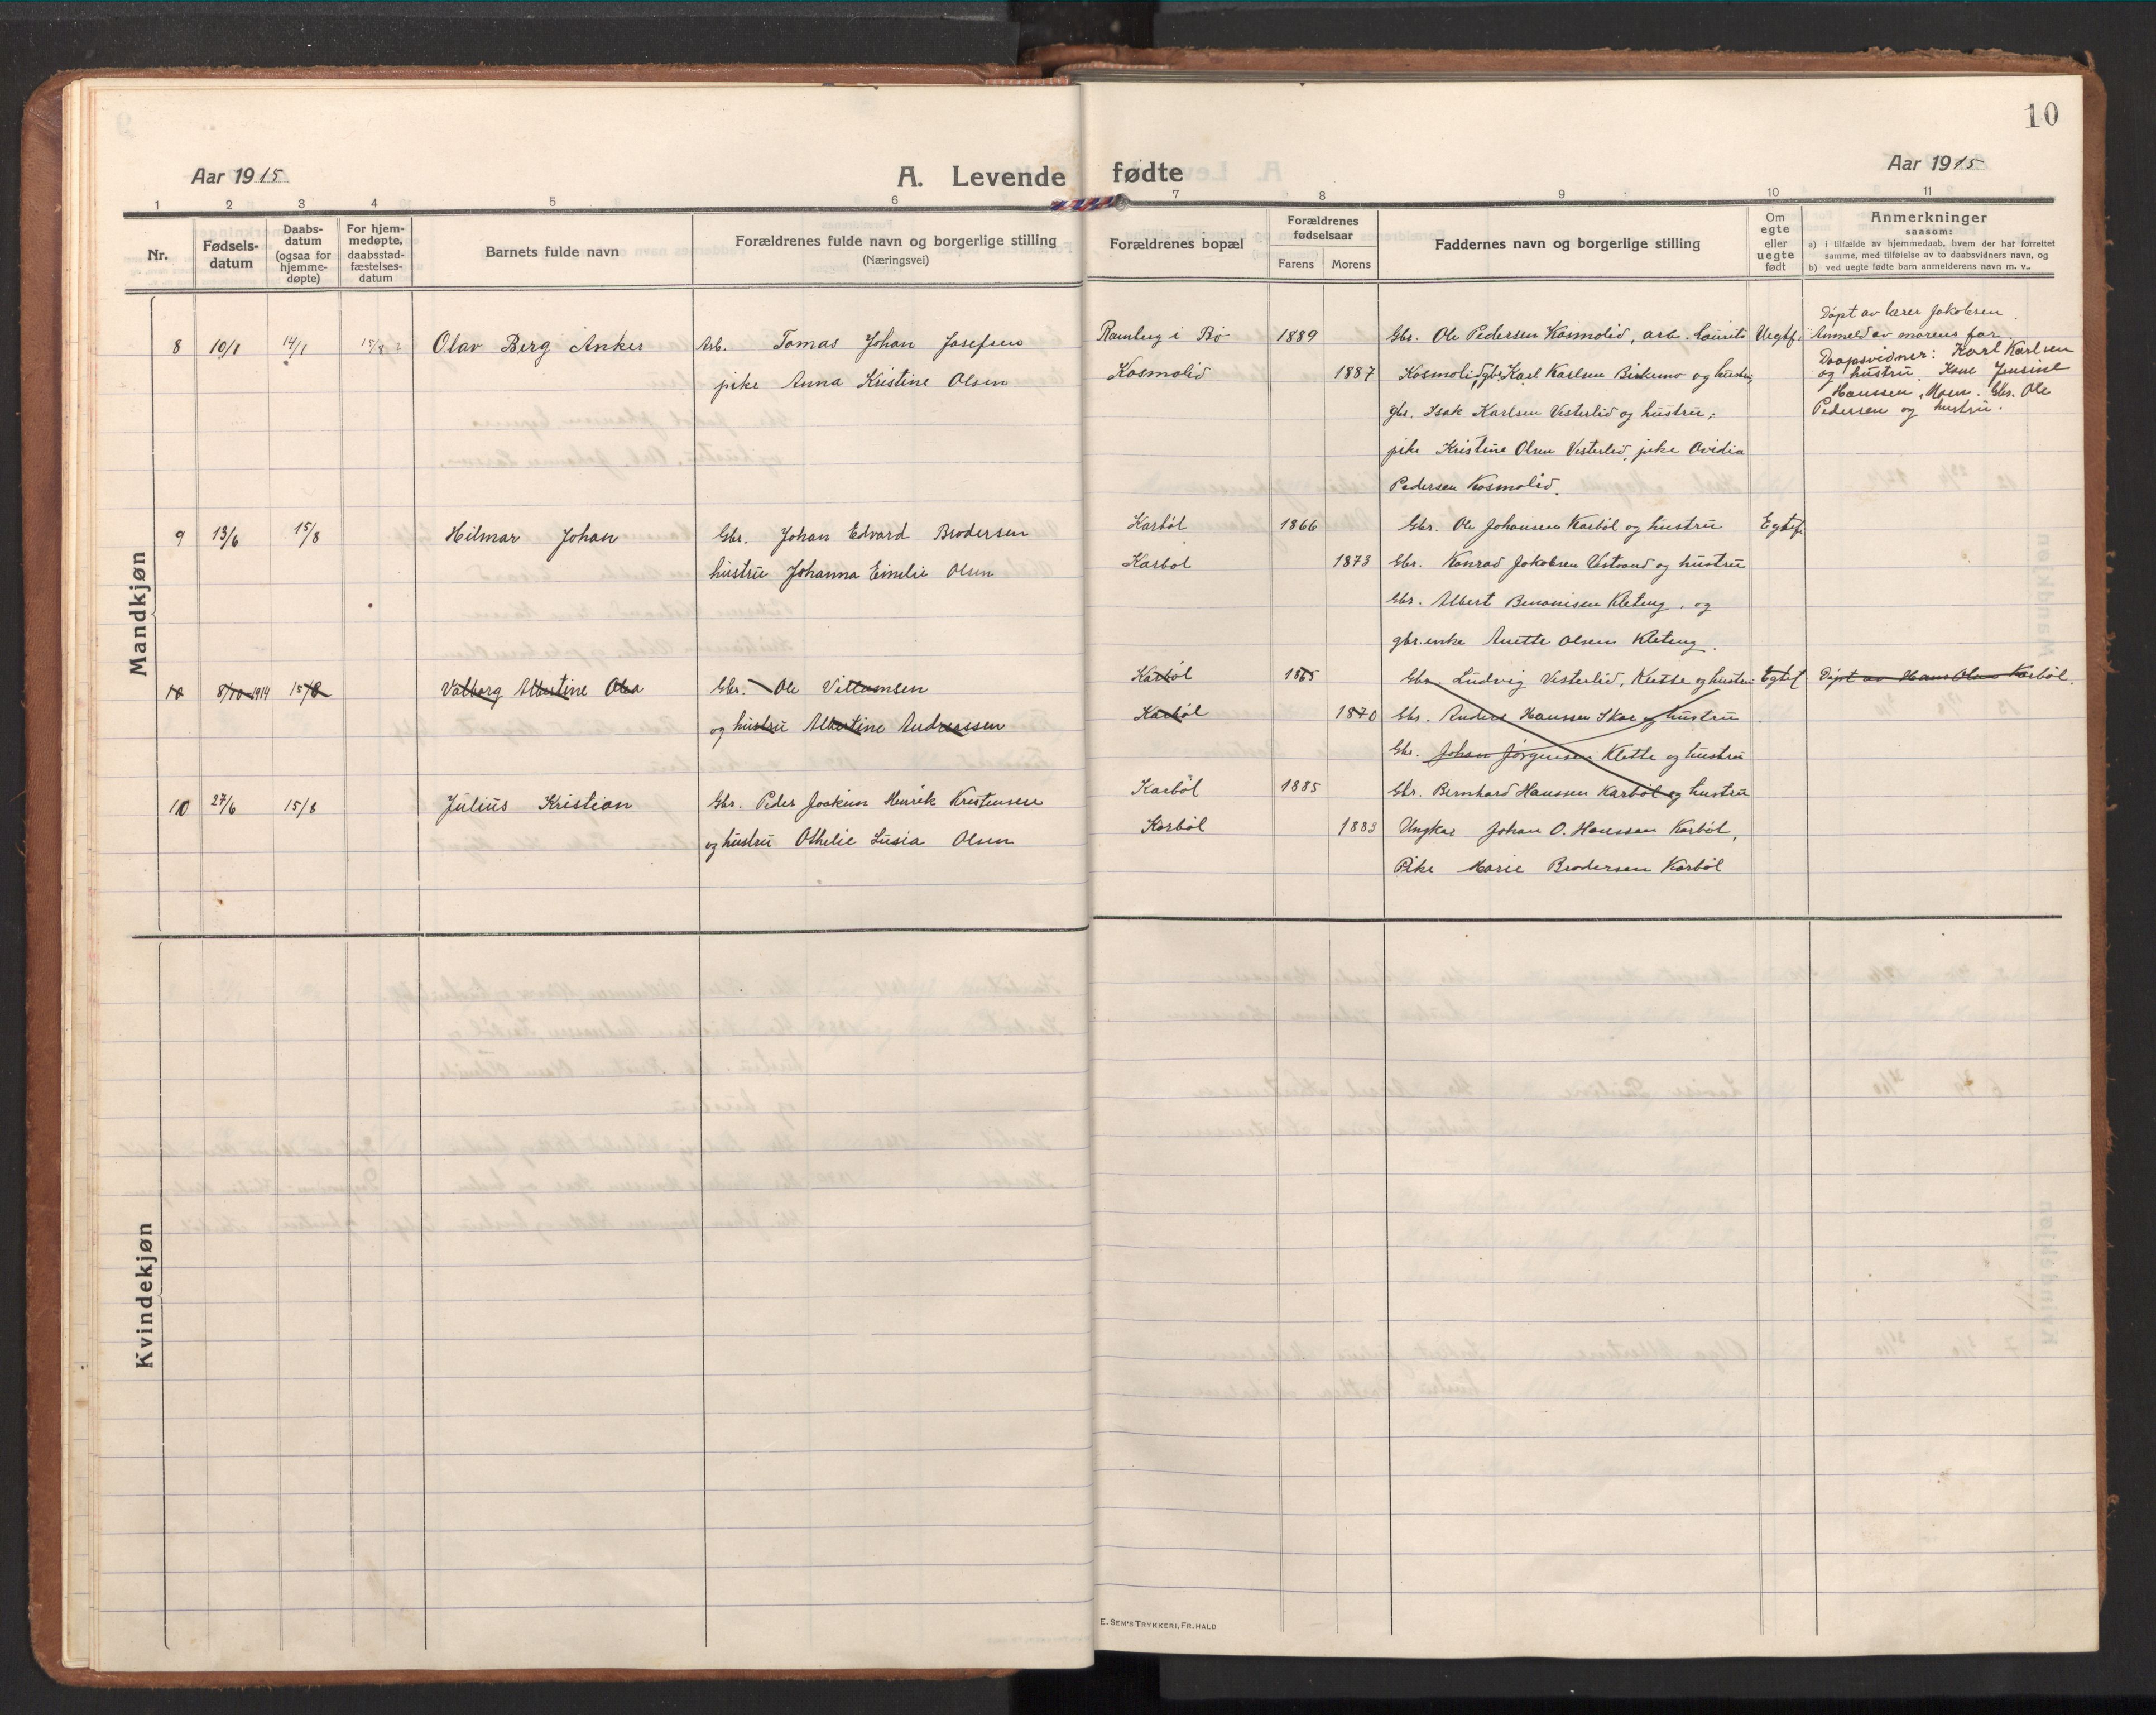 10
Aar 1915
A. Levende fødte
Aar 1915
1 2 3 4 5 6 7 8 9 10 11
Nr.
Fødsels-
datum
Daabs-
datum
(ogsaa for
hjemme-
døpte)
For hjem-
medøpte,
daabsstad-
fæstelses-
datum
Barnets fulde navn
Forældrenes fulde navn og borgerlige stilling
(Næringsvei)
Forældrenes bopæl
Forældrenes
fødselsaar
Farens Morens
Faddernes navn og borgerlige stilling
Om
egte
eller
uegte
født
Anmerkninger
saasom:
a) i tilfælde av hjemmedaab, hvem der har forrettet
samme, med tilføielse av to daabsvidners navn, og
b) ved uegte fødte barn anmelderens navn m. v.
Mandkjøn
8 10/1 14/1 15/8 Olav Berg Anker Arb. Tomas Johan Josefsen Ramberg i Bø 1889 Gbr. Ole Pedersen Kosmolid, arb. Laurits Uegtf.
pike Anna Kristine Olsen Kosmolid 1887 Kosmolid, gbr. Karl Karlsen Birkemo og hustru,
gbr. Isak Karlsen Vesterlid og hustru,
pike Kristine Olsen Vesterlid, pike Ovidia
Pedersen Kosmolid.
Døpt av lærer Jakobsen.
Anmeld av morens far.
Daapsvidner: Karl Karlsen
og hustru. Kone Jensine
Hanssen, Moen. Gbr. Ole
Pedersen og hustru.
9 13/6 15/8 Hilmar Johan Gbr. Johan Edvard Brodersen Karbøl 1866 Gbr. Ole Johansen Karbøl og hustru Egtef.
hustru Johanna Emelie Olsen Karbøl 1873 Gbr. Konrad Jakobsen Vestrand og hustru
Gbr. Albert Benonisen Kleteng, og
gbr.enke Anette Olsen Kleteng.
10 8/10 1914 15/8 Valborg Albertine Olea Gbr. Ole Villumsen Karbøl 1865 Gbr. Ludvig Vesterlid, Klette og hustru Egtef. Døpt av Hans Olsen Karbøl.
og hustru Albertine Andreassen Karbøl 1870 Gbr. Anders Hanssen Skar og hustru
Gbr. Johan Jørgensen Klette og hustru
10 27/6 15/8 Julius Kristian Gbr. Peder Joakim Henrik Kristensen Karbøl 1885 Gbr. Bernhard Hanssen Karbøl og hustru
og hustru Othelie Lusia Olsen Karbøl 1883 Ungkar Johan O. Hanssen Karbøl,
Pike Marie Brodersen Karbøl
Kvindekjøn
E. SEM'S TRYKKERI, FR.HALD